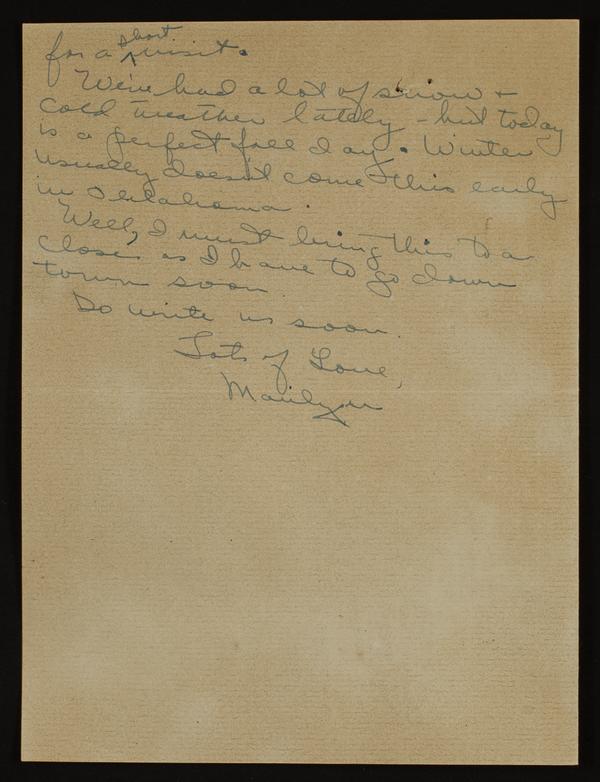 for a short visit.
We've had a lot of snow +
cold weather lately - but today
is a perfect fall day. Winter
usually doesn't come this early
in Oklahoma.
Well, I must bring this to a
close as I have to go down
town soon.
Do write us soon.
Lots of Love,
Marilyn